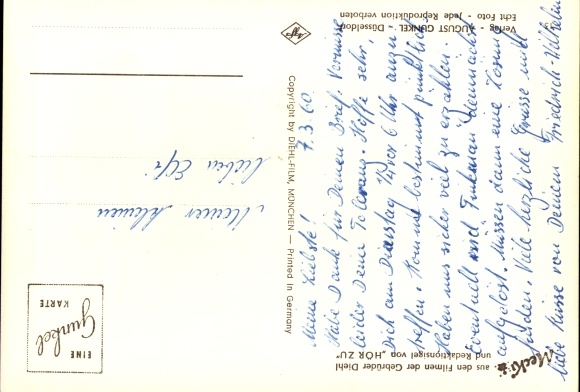 Meine Liebste!
7.3.60.
Hab Dank für Deinen Brief. Vermisse
leider Deine Toleranz. Hoffe sehr,
Dich am Dienstag 1/4 vor 6 Uhr anzu-
treffen. Komme bestimmt pünktlich
Haben uns sicher viel zu erzählen.
Eventuell wird Finkman demnächst
aufgelöst. Müssen dann eine Lösung
finden. Viele herzliche Grüsse und
liebe Küsse von Deinem Friedrich-Wilhelm
Meiner kleinen
lieben Elfi
Copyright by DIEHL-FILM, MÜNCHEN — Printed in Germany
Mecki
aus den Filmen der Gebrüder Diehl
und Redaktionsigel von „HÖR ZU"
Verlag - AUGUST GUNKEL - Düsseldorf
Echt Foto - Jede Reproduktion verboten
Agfa
EINE
Gunkel
KARTE